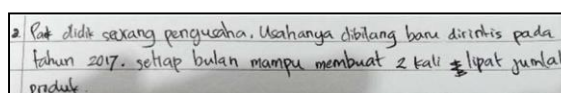 2. Pak didik seorang pengusaha. Usahanya dibilang baru dirintis pada
tahun 2017. setiap bulan mampu membuat 2 kali lipat jumlah
produk.